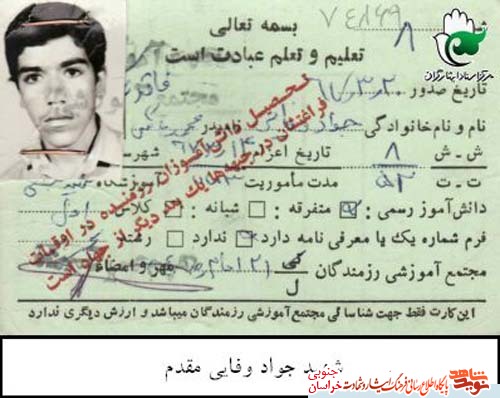 بسمه تعالی
۷۴۸۴۹
۸
تعلیم و تعلم عبادت است
مرکز اسناد ایثارگران
تاریخ صدور
نام و نام خانوادگی جواد نام پدر محمد
ش - ش ۸ تاریخ اعزام شهرستان
ت - ت ۵۳ مدت ماموریت
دانش‌آموز رسمی : متفرقه : شبانه : کلاس
فرم شماره یک یا معرفی نامه دارد ندارد رشته
مجتمع آموزشی رزمندگان ۲۱ امام مهر و امضاء
تحصیل دانش آموزان رزمنده در اوقات
فراغتشان در جبهه‌ها یک بعد دیگر از جهاد است
این کارت فقط جهت شناسائی مجتمع آموزشی رزمندگان میباشد و ارزش دیگری ندارد
شهید جواد وفایی مقدم
پایگاه اطلاع رسانی فرهنگ ایثار و شهادت خراسان جنوبی
نوید شاهد